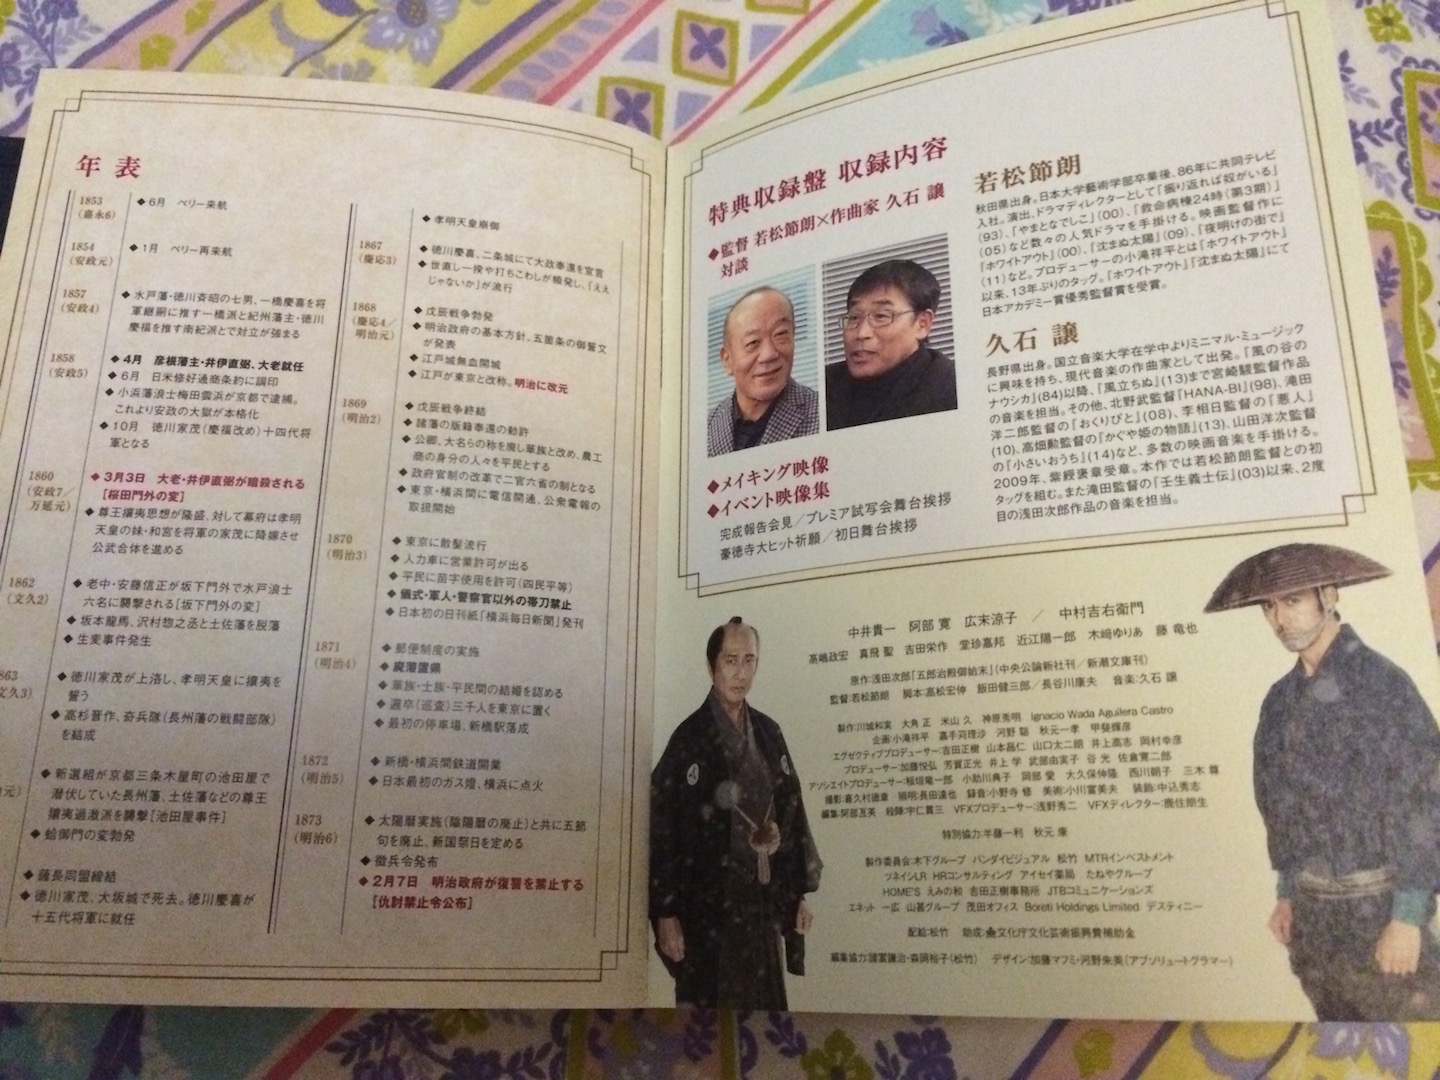 年表
1853
(嘉永6)
◆6月 ペリー来航
1854
(安政元)
◆1月 ペリー再来航
1857
(安政4)
◆水戸藩・徳川斉昭の七男、一橋慶喜を将
軍継嗣に推す一橋派と紀州藩主・徳川
慶福を推す南紀派とで対立が強まる
1858
(安政5)
◆4月 彦根藩主・井伊直弼、大老就任
◆6月 日米修好通商条約に調印
◆小浜藩浪士梅田雲浜が京都で逮捕。
これより安政の大獄が本格化
◆10月 徳川家茂(慶福改め)十四代将
軍となる
1860
(安政7/
万延元)
◆3月3日 大老・井伊直弼が暗殺される
[桜田門外の変]
◆尊王攘夷思想が隆盛、対して幕府は孝明
天皇の妹・和宮を将軍の家茂に降嫁させ
公武合体を進める
1862
(文久2)
◆老中・安藤信正が坂下門外で水戸浪士
六名に襲撃される[坂下門外の変]
◆坂本龍馬、沢村惣之丞と土佐藩を脱藩
◆生麦事件発生
863
文久3)
◆徳川家茂が上洛し、孝明天皇に攘夷を
誓う
◆高杉晋作、奇兵隊(長州藩の戦闘部隊)
を結成
元)
◆新選組が京都三条木屋町の池田屋で
潜伏していた長州藩、土佐藩などの尊王
攘夷過激派を襲撃[池田屋事件]
◆蛤御門の変勃発
◆薩長同盟締結
◆徳川家茂、大坂城で死去。徳川慶喜が
十五代将軍に就任
◆孝明天皇崩御
1867
(慶応3)
◆徳川慶喜、二条城にて大政奉還を宣言
◆世直し一揆や打ちこわしが頻発し、「ええ
じゃないか」が流行
1868
(慶応4/
明治元)
◆戊辰戦争勃発
◆明治政府の基本方針、五箇条の御誓文
が発表
◆江戸城無血開城
◆江戸が東京と改称。明治に改元
1869
(明治2)
◆戊辰戦争終結
◆諸藩の版籍奉還の勅許
◆公卿、大名らの称を廃し華族と改め、農工
商の身分の人々を平民とする
◆政府官制の改革で二官六省の制となる
◆東京・横浜間に電信開通、公衆電報の
取扱開始
1870
(明治3)
◆東京に散髪流行
◆人力車に営業許可が出る
◆平民に苗字使用を許可(四民平等)
◆儀式・軍人・警察官以外の帯刀禁止
◆日本初の日刊紙「横浜毎日新聞」発刊
1871
(明治4)
◆郵便制度の実施
◆廃藩置県
◆華族・士族・平民間の結婚を認める
◆邏卒(巡査)三千人を東京に置く
◆最初の停車場、新橋駅落成
1872
(明治5)
◆新橋・横浜間鉄道開業
◆日本最初のガス燈、横浜に点火
1873
(明治6)
◆太陽暦実施(陰陽暦の廃止)と共に五節
句を廃止、新国祭日を定める
◆徴兵令発布
◆2月7日 明治政府が復讐を禁止する
[仇討禁止令公布]
特典収録盤 収録内容
◆監督 若松節朗×作曲家 久石 譲
対談
◆メイキング映像
◆イベント映像集
完成報告会見/プレミア試写会舞台挨拶
豪徳寺大ヒット祈願/初日舞台挨拶
若松節朗
秋田県出身。日本大学藝術学部卒業後、86年に共同テレビ
入社。演出、ドラマディレクターとして「振り返れば奴がいる」
(93)、「やまとなでしこ」(00)、「救命病棟24時(第3期)」
(05)など数々の人気ドラマを手掛ける。映画監督作に
『ホワイトアウト』(00)、『沈まぬ太陽』(09)、『夜明けの街で』
(11)など。プロデューサーの小滝祥平とは『ホワイトアウト』
以来、13年ぶりのタッグ。『ホワイトアウト』『沈まぬ太陽』にて
日本アカデミー賞優秀監督賞を受賞。
久石 譲
長野県出身。国立音楽大学在学中よりミニマル・ミュージック
に興味を持ち、現代音楽の作曲家として出発。『風の谷の
ナウシカ』(84)以降、『風立ちぬ』(13)まで宮崎駿監督作品
の音楽を担当。その他、北野武監督『HANA-BI』(98)、滝田
洋二郎監督の『おくりびと』(08)、李相日監督の『悪人』
(10)、高畑勲監督の『かぐや姫の物語』(13)、山田洋次監督
の『小さいおうち』(14)など、多数の映画音楽を手掛ける。
2009年、紫綬褒章受章。本作では若松節朗監督との初
タッグを組む。また滝田監督の『壬生義士伝』(03)以来、2度
目の浅田次郎作品の音楽を担当。
中井貴一 阿部 寛 広末涼子 / 中村吉右衛門
髙嶋政宏 真飛 聖 吉田栄作 堂珍嘉邦 近江陽一郎 木﨑ゆりあ 藤 竜也
原作:浅田次郎「五郎治殿御始末」(中央公論新社刊/新潮文庫刊)
監督:若松節朗 脚本:高松宏伸 飯田健三郎/長谷川康夫 音楽:久石 譲
製作:川城和実 大角 正 米山 久 神原秀明 Ignacio Wada Aguilera Castro
企画:小滝祥平 嘉手苅理沙 河野 聡 秋元一孝 甲斐輝彦
エグゼクティブプロデューサー:吉田正樹 山本昌仁 山口太二朗 井上高志 岡村幸彦
プロデューサー:加藤悦弘 芳賀正光 井上 学 武部由実子 谷 光 佐倉寛二郎
アソシエイトプロデューサー:稲垣竜一郎 小助川典子 阿部 愛 大久保伸隆 西川朝子 三木 尊
撮影:喜久村徳章 照明:長田達也 録音:小野寺 修 美術:小川富美夫 装飾:中込秀志
編集:阿部亙英 殺陣:宇仁貫三 VFXプロデューサー:浅野秀二 VFXディレクター:鹿住朗生
特別協力:半藤一利 秋元 康
製作委員会:木下グループ バンダイビジュアル 松竹 MTRインベストメント
ツネイシLR HRコンサルティング アイセイ薬局 たねやグループ
HOME'S えみの和 吉田正樹事務所 JTBコミュニケーションズ
エネット 一広 山甚グループ 茂田オフィス Boreti Holdings Limited デスティニー
配給:松竹 助成:文化庁文化芸術振興費補助金
編集協力:諸冨謙治・森岡裕子(松竹) デザイン:加藤マフミ・河野朱美(アブソリュートグラマー)